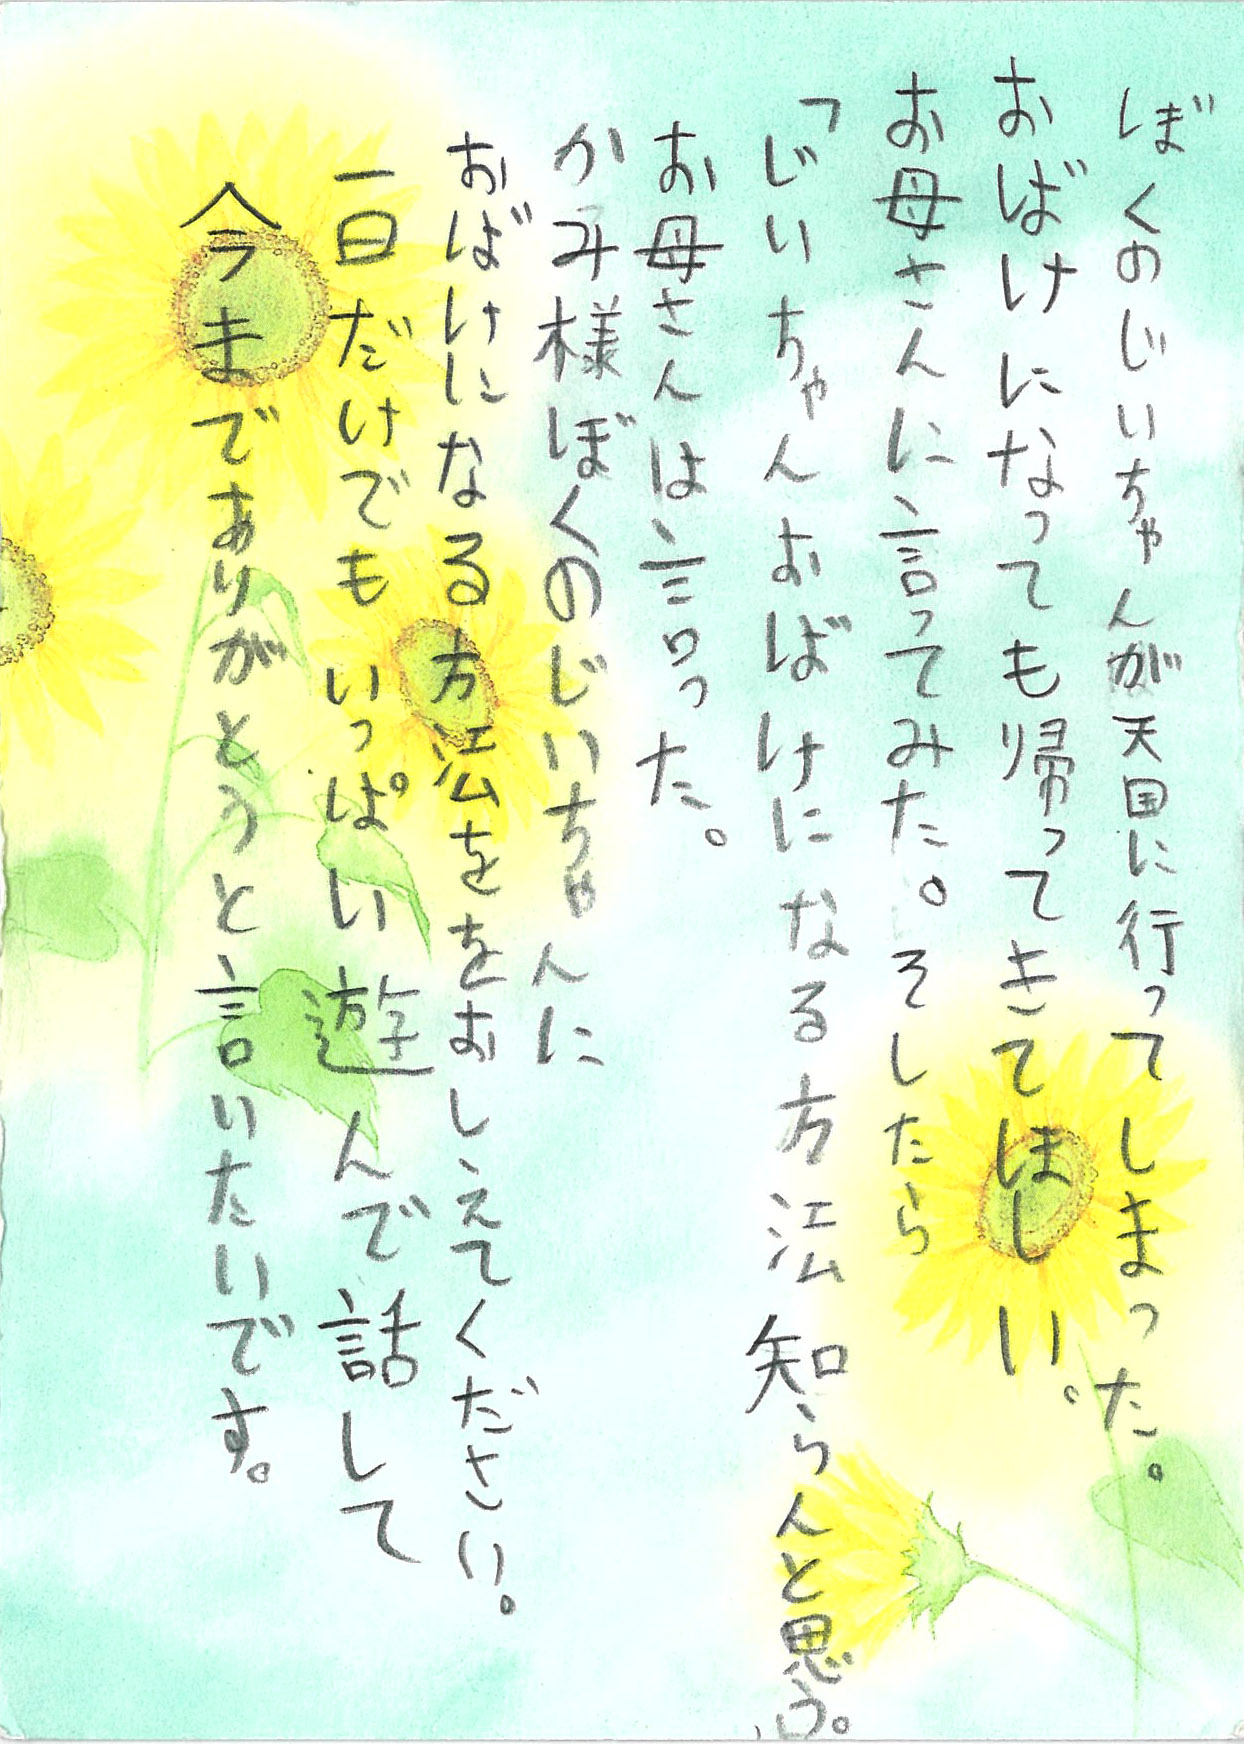 ぼくのじいちゃんが天国に行ってしまった。
おばけになっても帰ってきてほしい。
お母さんに言ってみた。そしたら
「じいちゃんおばけになる方法知らんと思う。」
お母さんは言った。
かみ様ぼくのじいちゃんに
おばけになる方法ををおしえてください。
一日だけでもいっぱい遊んで話して
今までありがとうと言いたいです。